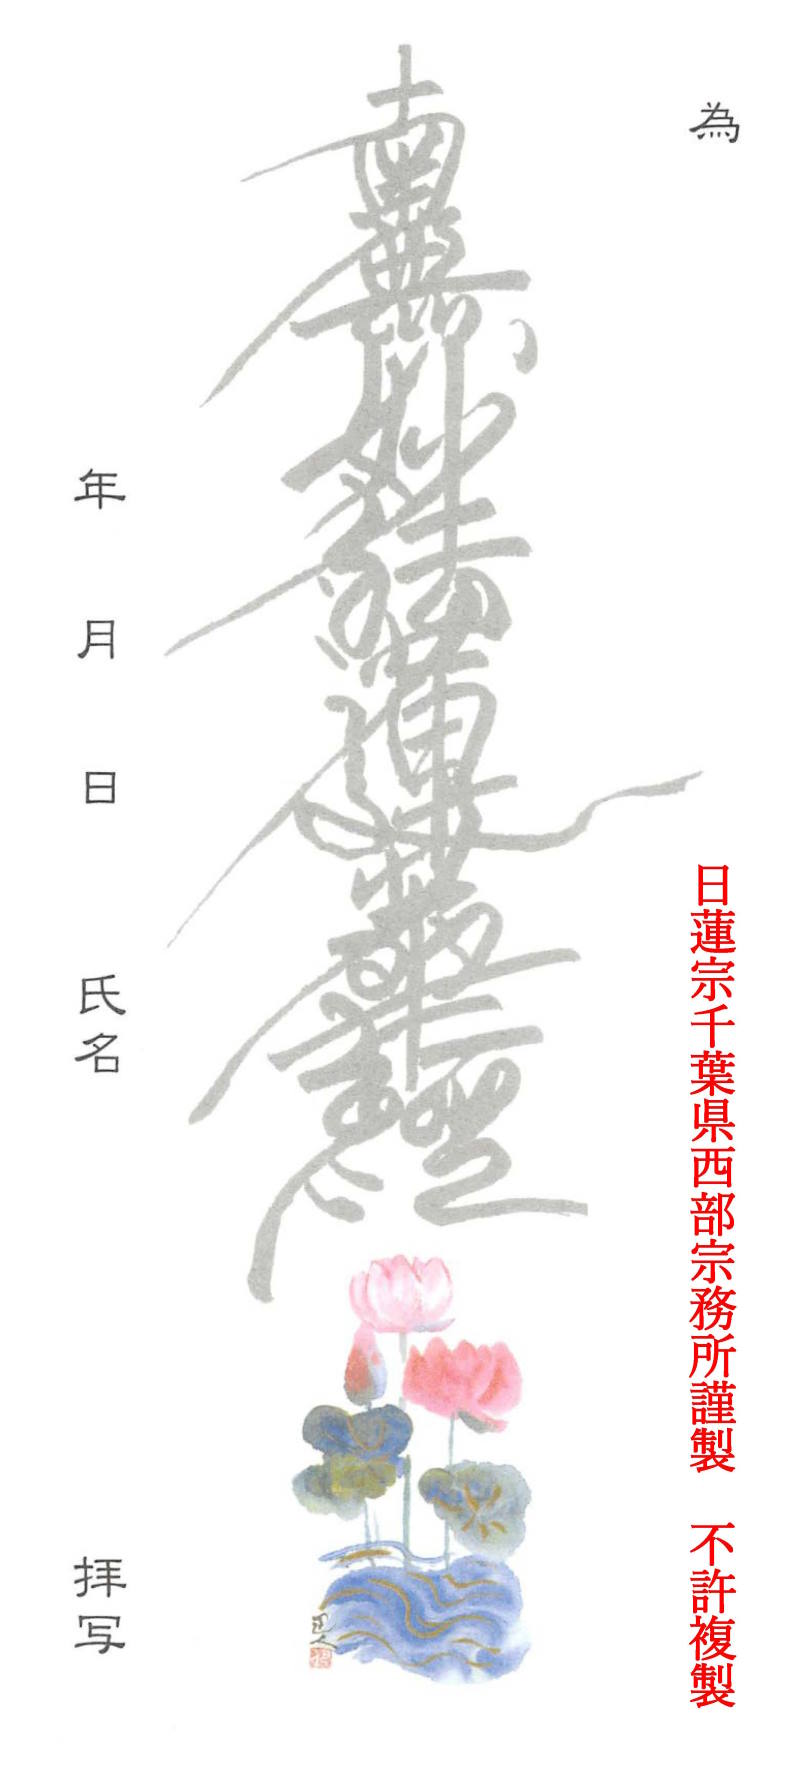 為
日蓮宗千葉県西部宗務所謹製　不許複製
南無妙法蓮華経
年　月　日　氏名　拝写